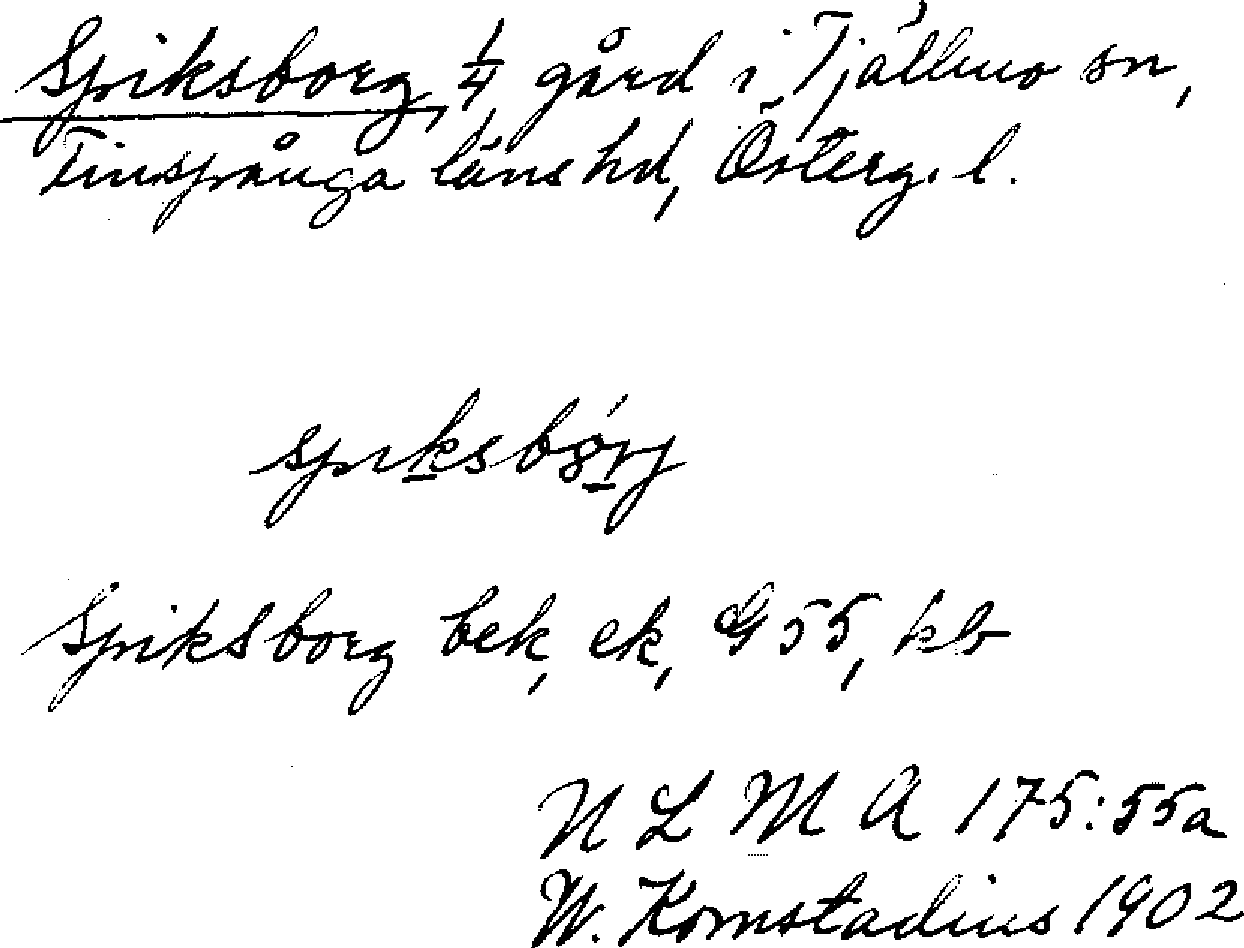 Spiksborg, 1/4 gård i Tjällmo sn,
Finspånga läns hd, Österg. l.
spiksbørj
Spiksborg bek, ek, G 55, kb
N L M A 175:55a
W. Komstadius 1902